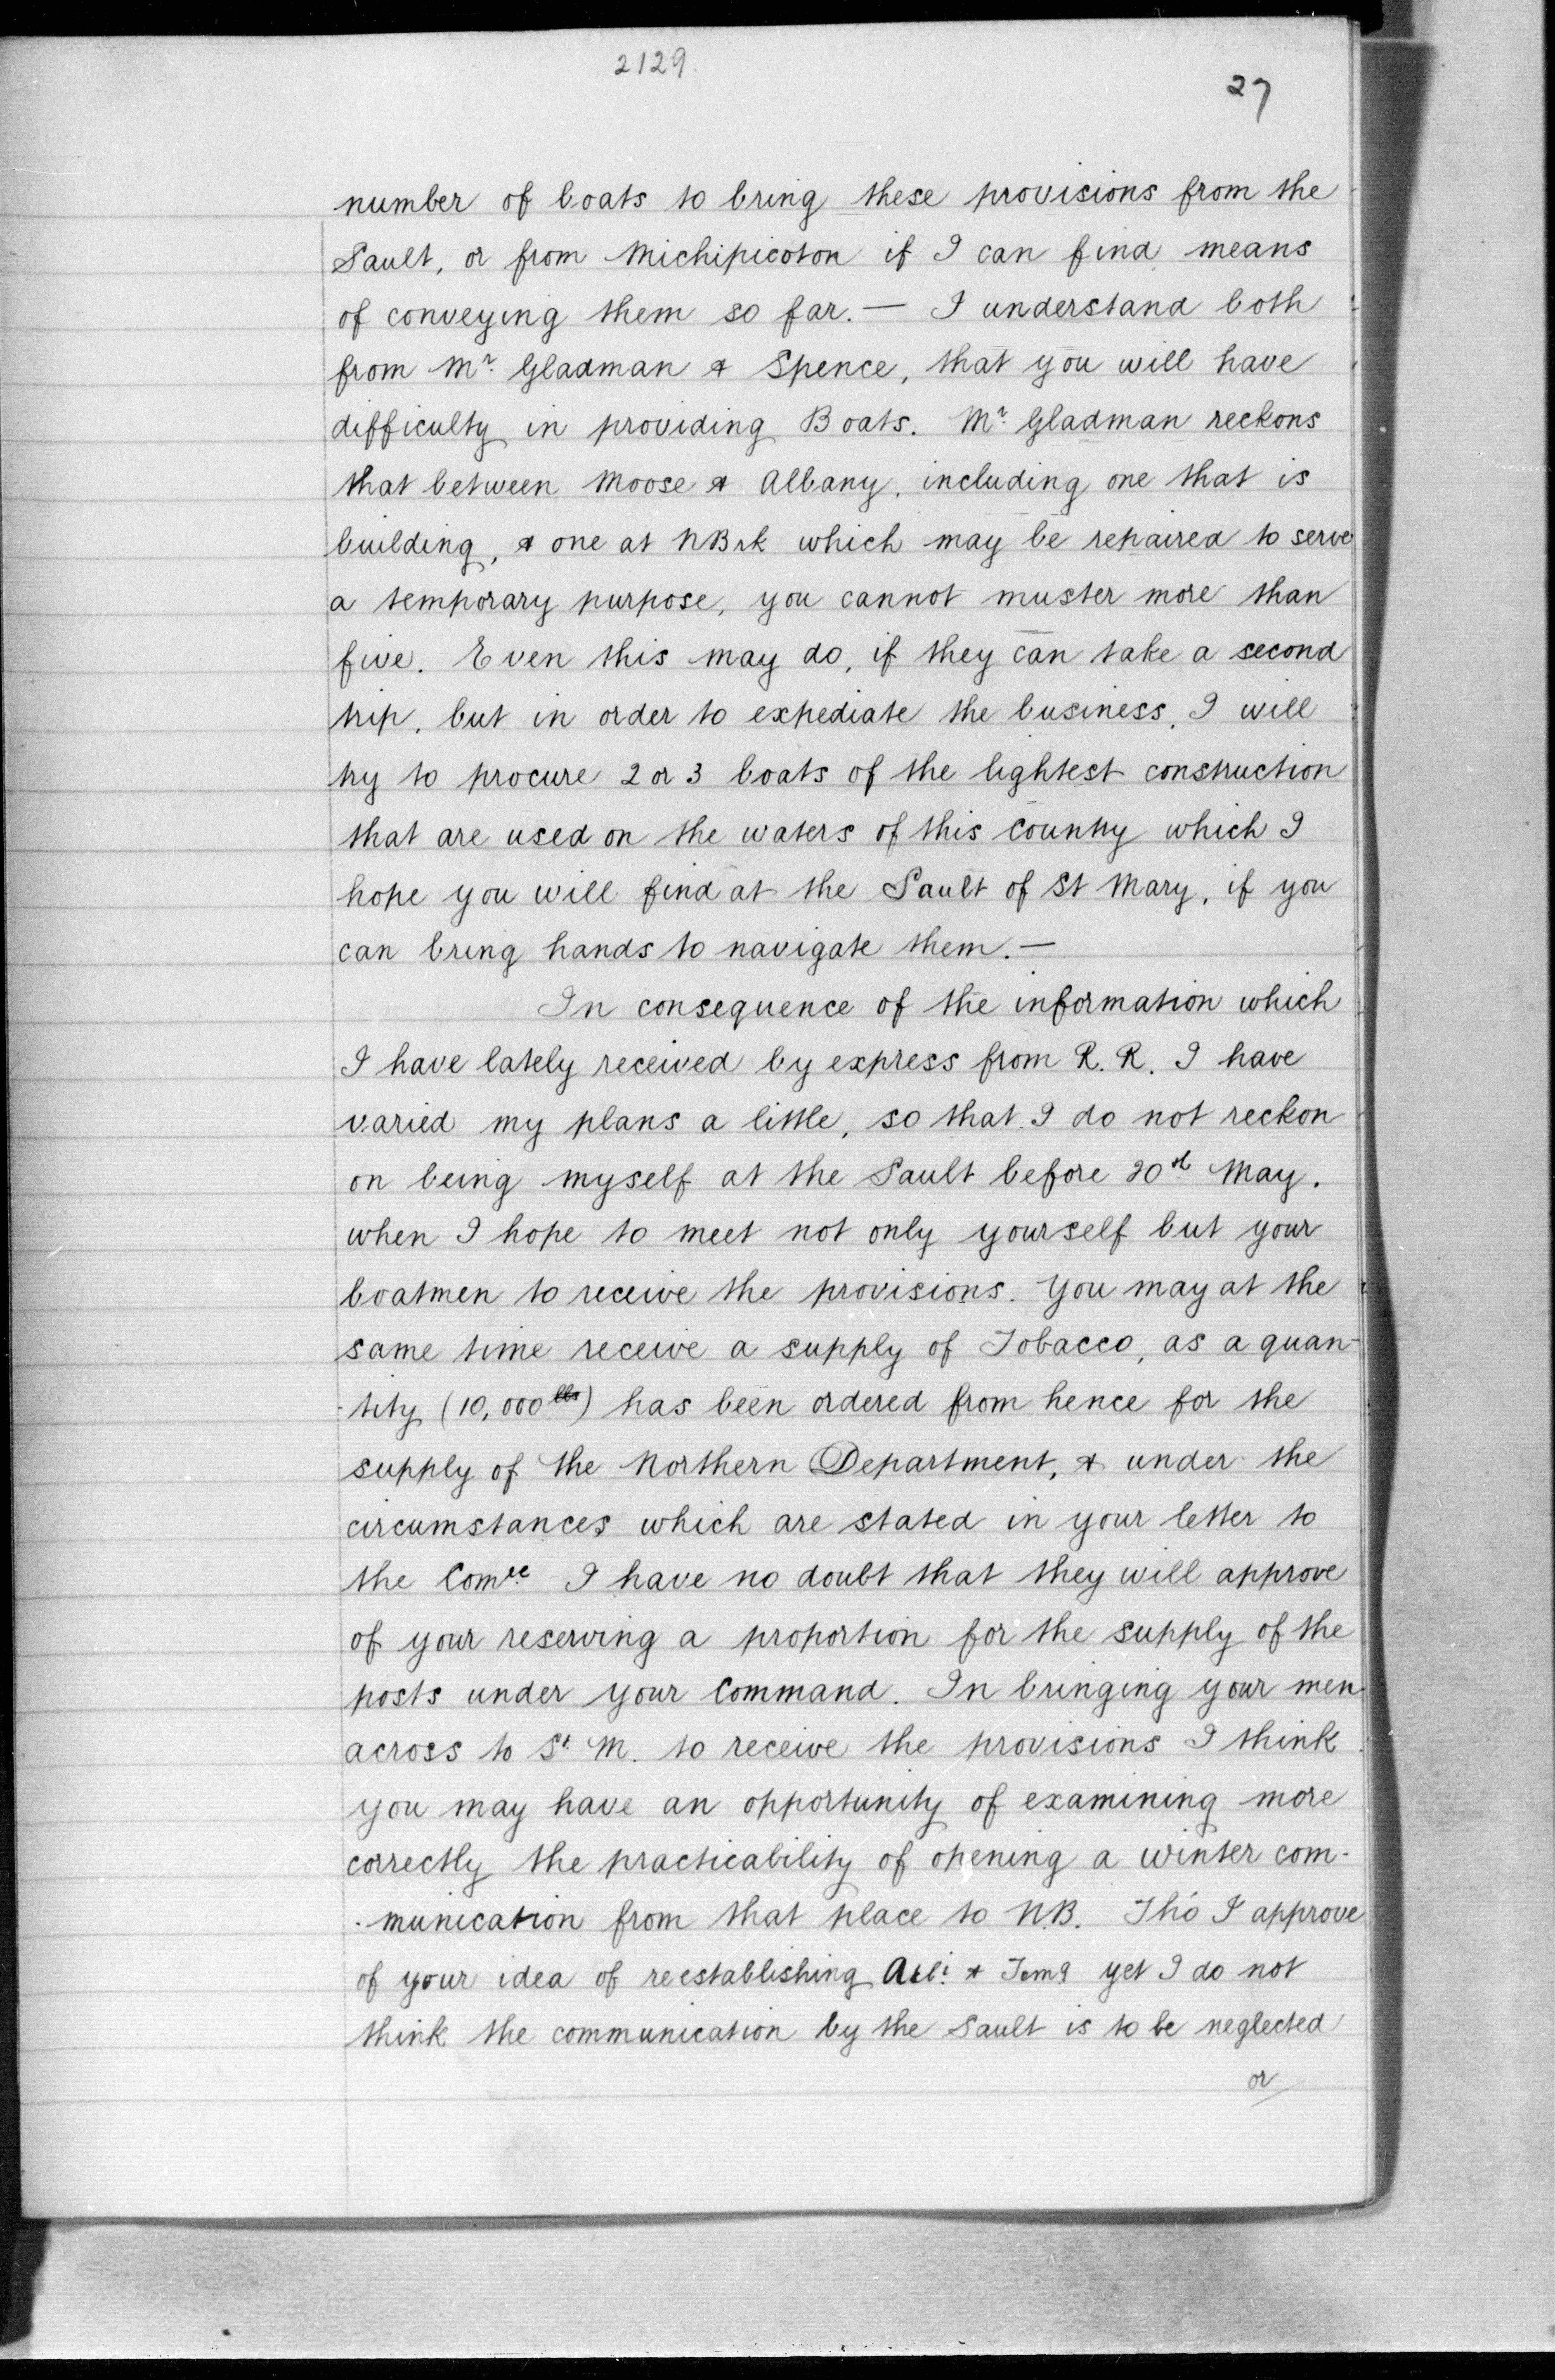 2129.
27
number of boats to bring these provisions from the
Sault, or from Michipicoton if I can find means
of conveying them so far. — I understand both
from Mr. Gladman & Spence, that you will have
difficulty in providing Boats. Mr. Gladman reckons
that between Moose & Albany, including one that is
building, & one at NBrk which may be repaired to serve
a temporary purpose, you cannot muster more than
five. Even this may do, if they can take a second
trip, but in order to expediate the business, I will
try to procure 2 or 3 boats of the lightest construction
that are used on the waters of this Country which I
hope you will find at the Sault of St Mary, if you
can bring hands to navigate them. —
In consequence of the information which
I have lately received by express from R. R. I have
varied my plans a little, so that I do not reckon
on being myself at the Sault before 20th May.
when I hope to meet not only yourself but your
boatmen to receive the provisions. You may at the
same time receive a supply of Tobacco, as a quan-
-tity (10,000 lbs) has been ordered from hence for the
supply of the Northern Department, & under the
circumstances which are stated in your letter to
the Comee I have no doubt that they will approve
of your reserving a proportion for the supply of the
posts under your Command. In bringing your men
across to St. M. to receive the provisions I think
you may have an opportunity of examining more
correctly the practicability of opening a winter com-
-munication from that place to N.B. Tho' I approve
of your idea of reestablishing & Temg yet I do not
think the communication by the Sault is to be neglected
or